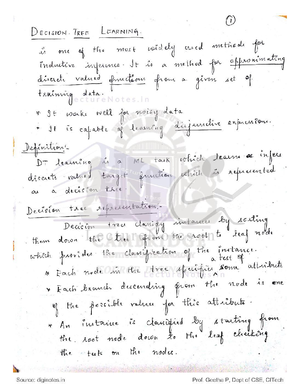 ①
DECISION TREE LEARNING
is one of the most widely used methods for
inductive inference. It is a method for approximating
discrete valued functions from a given set of
training data.
* It works well for noisy data
* It is capable of learning disjunctive expression.
Definition:
DT learning is a ML task which learns or infers
discrete valued target function which is represented
as a decision tree
Decision tree representation.
Decision tree classify instance by sorting
them down the tree from the root to leaf node
which provides the classification of the instance.
* Each node in the tree specifies a test of some attribute
* Each branch descending from the node is one
of the possible values for this attribute.
* An instance is classified by starting from
the root node down to the leaf checking
the tests on the nodes.
Source: diginotes.in
Prof. Geetha P, Dept of CSE, CITech